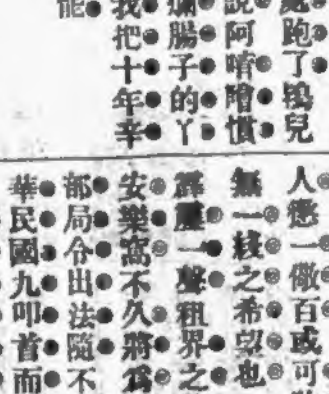 跑了鴇兒
說阿唷慣
爛腸子的丫
我把十年辛
能
人懲一儆百或可
無一綫之希望也
霹靂一聲租界之
安樂窩不久將爲
部局令出法隨不
華民國九叩首而